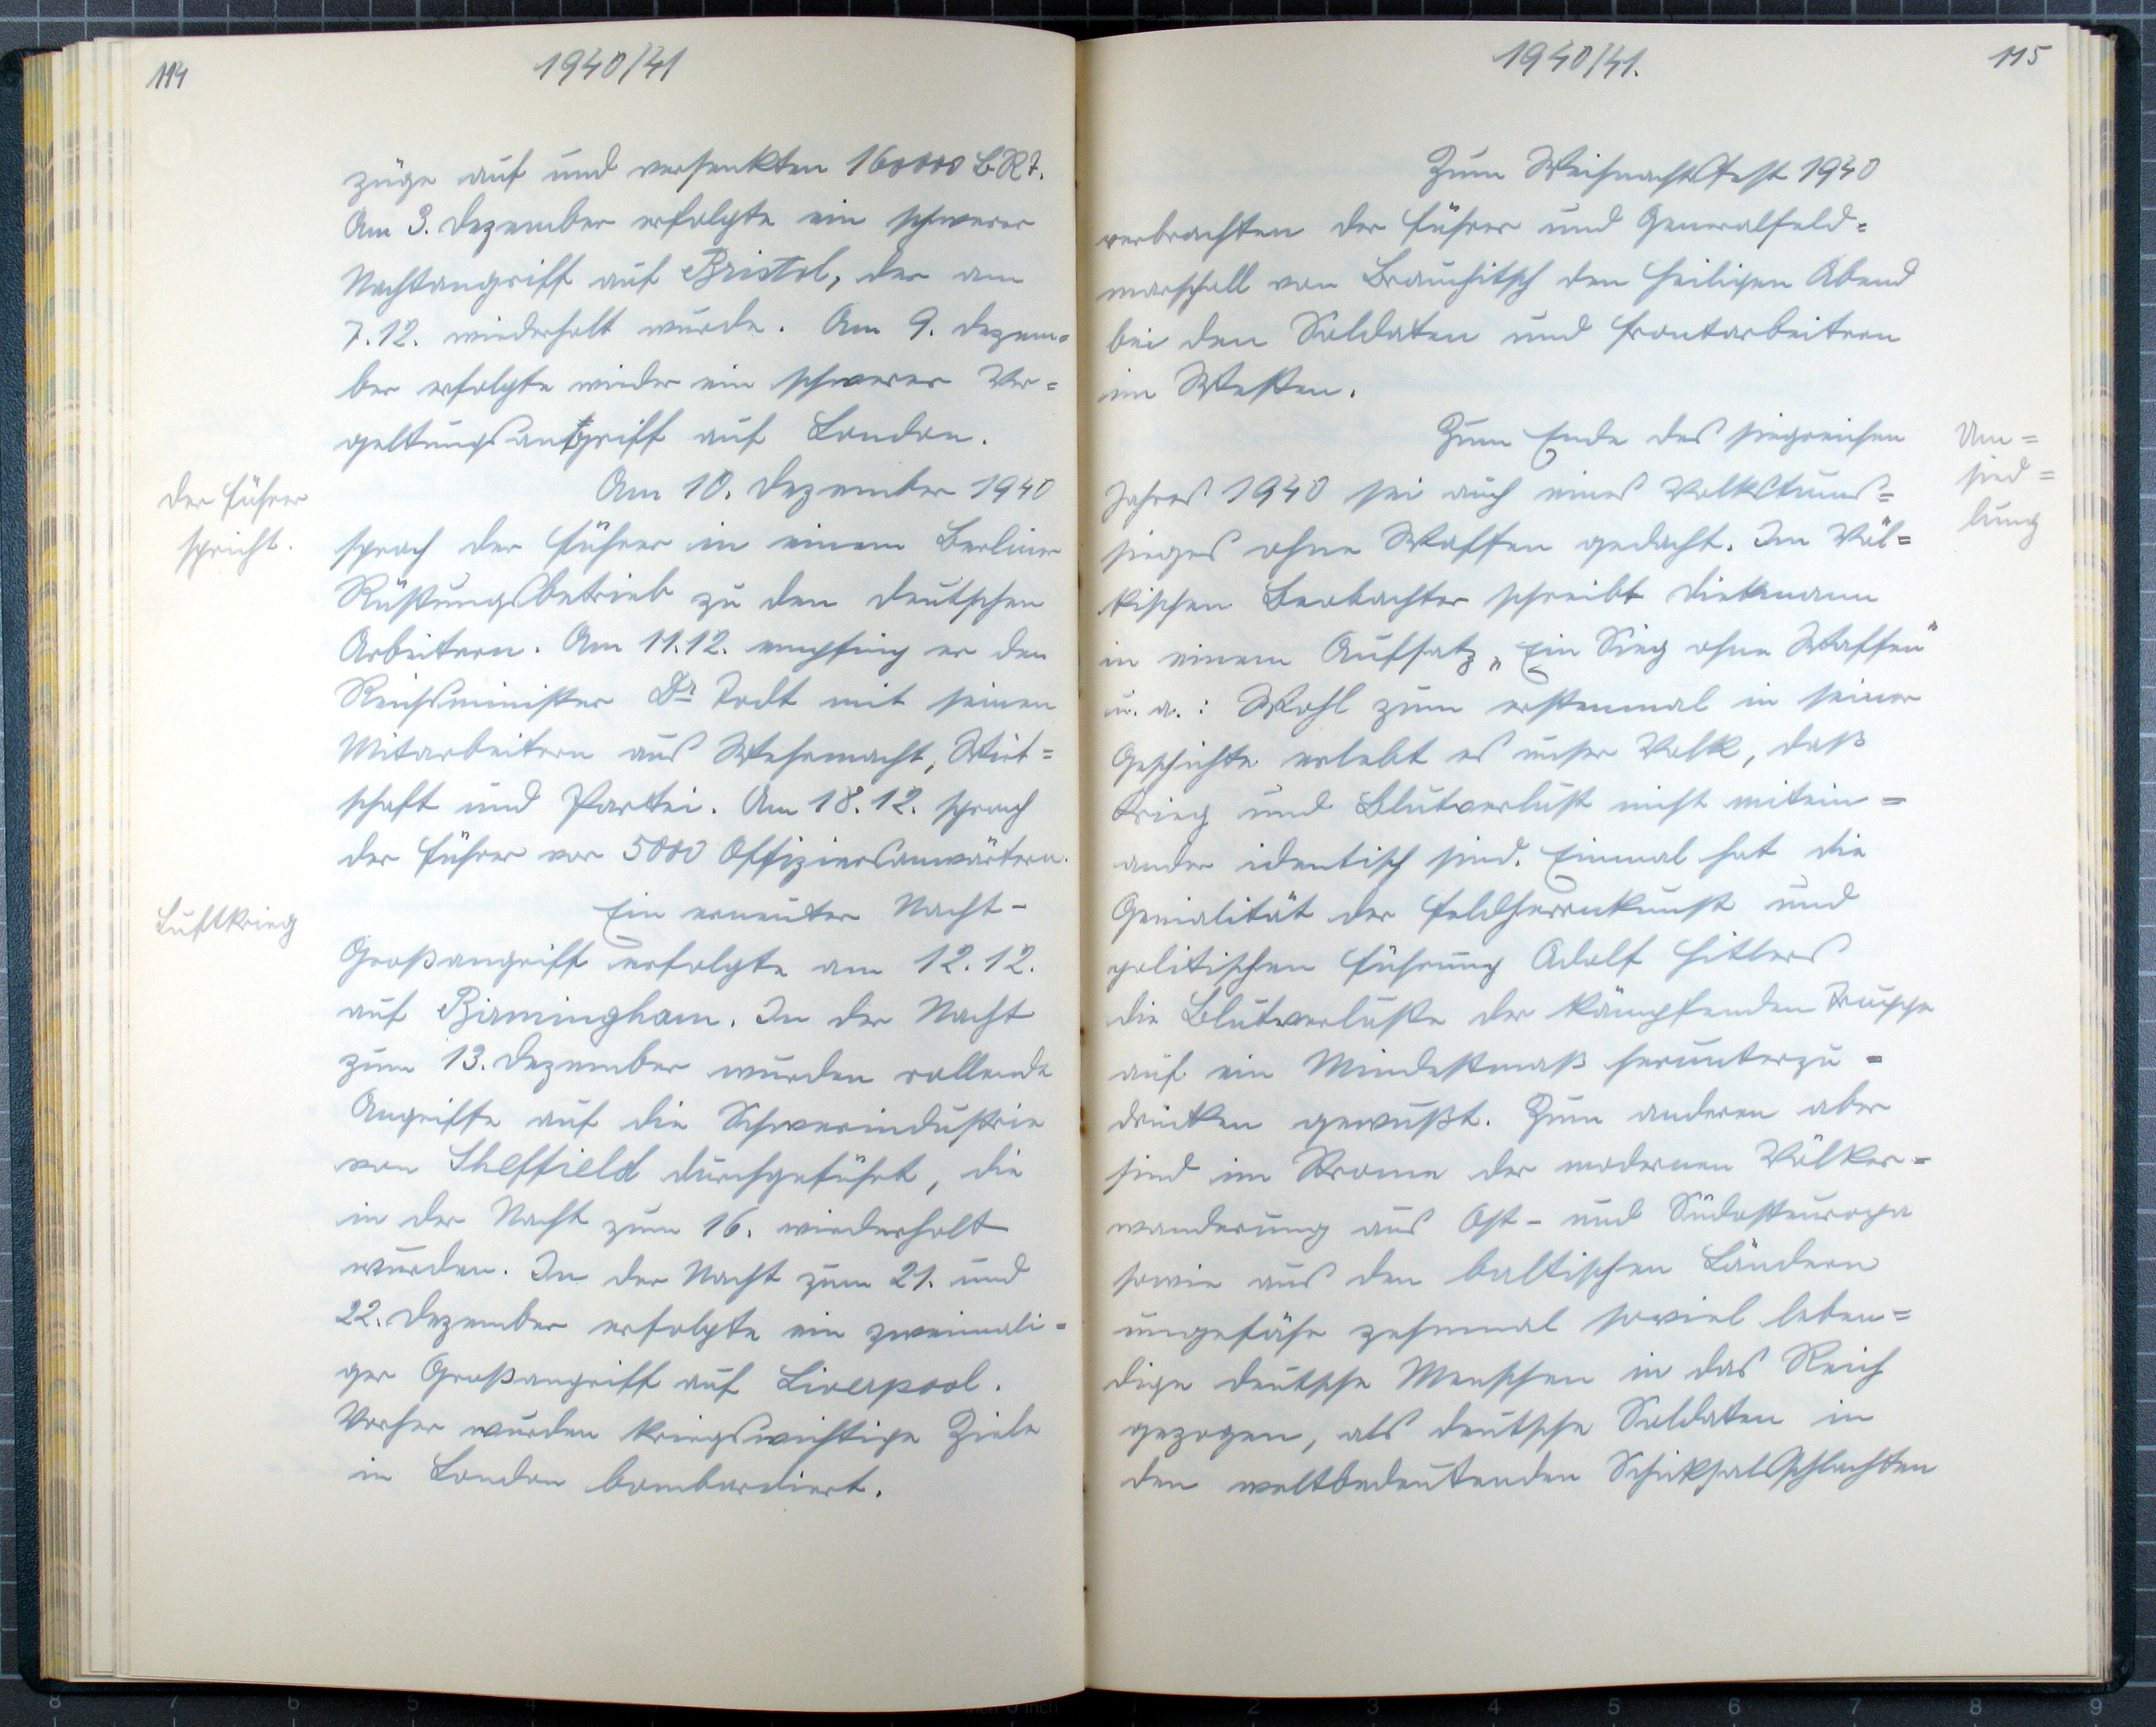 114
1940/41
züge auf und versenkten 160000 BRT.
Am 3. Dezember erfolgte ein schwerer
Nachtangriff auf Bristol, der am
7.12. wiederholt wurde. Am 9. Dezem=
ber erfolgte wieder ein schwerer Ver=
geltungsangriff auf London.
Der Führer
spricht.
Am 10. Dezember 1940
sprach der Führer in einem Berliner
Rüstungsbetrieb zu den deutschen
Arbeitern. Am 11.12. empfing er den
Reichsminister Dr Todt mit seinen
Mitarbeitern aus Wehrmacht, Wirt=
schaft und Partei. Am 18.12. sprach
der Führer vor 5000 Offiziersanwärtern.
Luftkrieg
Ein erneuter Nacht-
Großangriff erfolgte am 12.12.
auf Birmingham. In der Nacht
zum 13. Dezember wurden rollende
Angriffe auf die Schwerindustrie
von Sheffield durchgeführt, die
in der Nacht zum 16. wiederholt
wurden. In der Nacht zum 21. und
22. Dezember erfolgte ein zweimali=
ger Großangriff auf Liverpool.
Vorher wurden kriegswichtige Ziele
in London bombardiert.
1940/41.
115
Zum Weihnachtsfest 1940
verbrachten der Führer und Generalfeld=
marschall von Brauchitsch den Heiligen Abend
bei den Soldaten und Frontarbeitern
im Westen.
Um=
sied=
lung
Zum Ende des siegreichen
Jahres 1940 sei auch eines Volkstums=
sieges ohne Waffen gedacht. Im Völ=
kischen Beobachter schreibt Dietmann
in einem Aufsatz „Ein Sieg ohne Waffen"
u. a.: Wohl zum erstenmal in seiner
Geschichte erlebt es unser Volk, daß
Krieg und Blutverlust nicht mitein=
ander identisch sind. Einmal hat die
Genialität der Feldherrnkunst und
politischen Führung Adolf Hitlers
die Blutverluste der kämpfenden Truppe
auf ein Mindestmaß herunterzu=
drücken gewußt. Zum anderen aber
sind im Strome der modernen Völker=
wanderung aus Ost- und Südosteuropa
sowie aus den baltischen Ländern
ungefähr zehnmal soviel leben=
dige deutsche Menschen in das Reich
gezogen, als deutsche Soldaten in
den weltbedeutenden Schicksalsschlachten
8 7 6 5 4 1 2 3 4 5 6 7 8 9